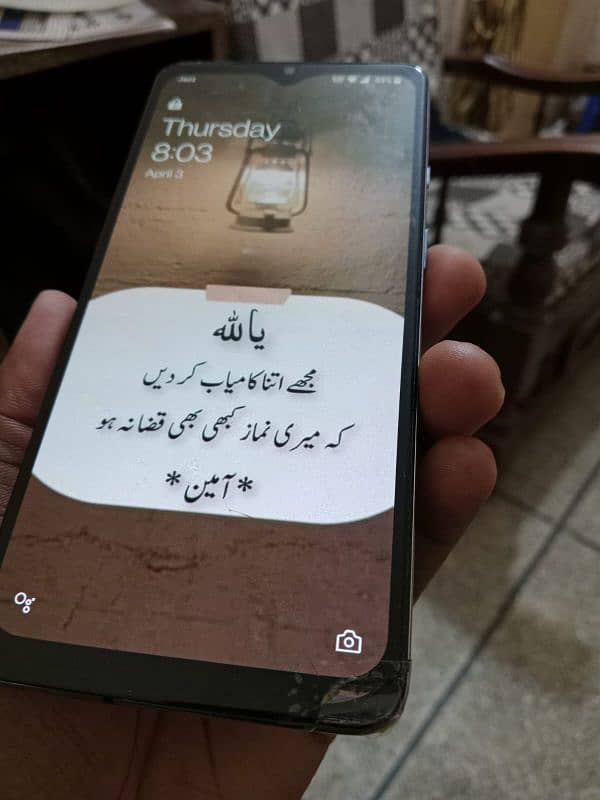 Thursday
8:03
April 3
یا اللہ
مجھے اتنا کامیاب کر دیں
کہ میری نماز کبھی بھی قضا نہ ہو
*آمین*